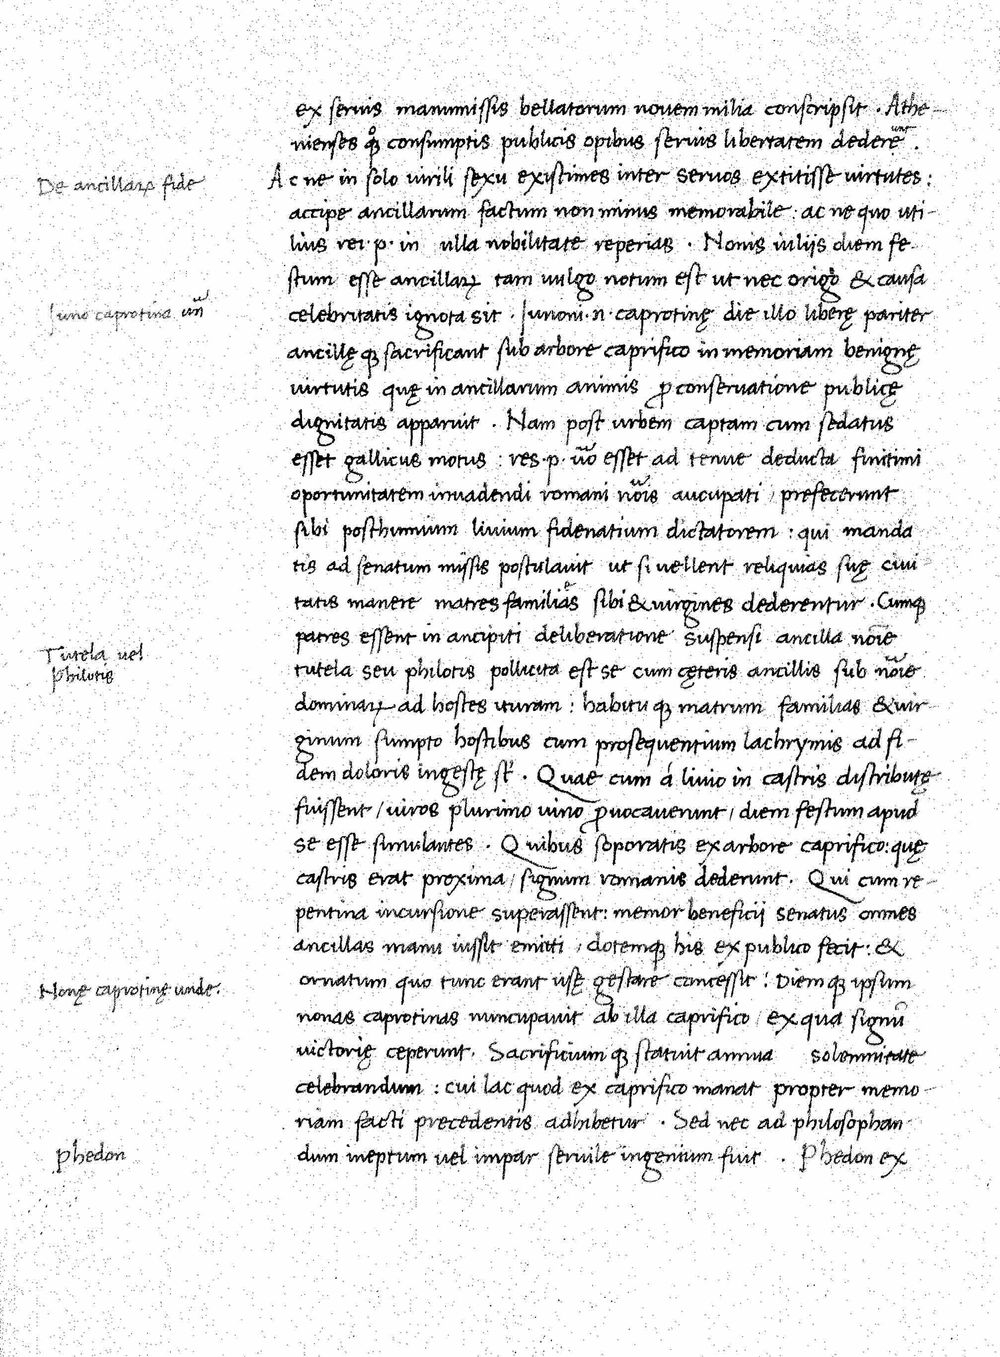 ex seruis manumissis bellatorum nouem milia conscripsit . Athe-
nienses qꝫ consumptis publicis opibus seruis libertatem dedere͛unt .
De ancillaꝝ fide
Ac ne in solo uirili sexu existimes inter seruos extitisse uirtutes :
accipe ancillarum factum non minus memorabile : ac ne quo uti-
lius rei·p· in ulla nobilitate reperias . Nonis iuliis diem fe-
stum esse ancillaꝝ tam uulgo notum est ut nec origo & causa
Iuno caprotina uñ
celebritatis ignota sit . Iunoni·n·caprotinę die illo liberę pariter
ancillę qꝫ sacrificant sub arbore caprifico in memoriam benignę
uirtutis quę in ancillarum animis ꝓ conseruatione publicę
dignitatis apparuit . Nam post urbem captam cum sedatus
esset gallicus motus : res·p· ũo esset ad tenue deducta finitimi
oportunitatem inuadendi romani nõis aucupati / prefecerunt
sibi posthumium liuium fidenatium dictatorem : qui manda
tis ad senatum missis postulauit ut si uellent reliquias suę ciui-
tatis manere matres familias sibi & uirgines dederentur . Cumqꝫ
patres essent in ancipiti deliberatione suspensi ancilla noĩe
Tutela uel
Philotis
tutela seu philotis pollicita est se cum cęteris ancillis sub noĩe
dominaꝝ ad hostes ituram : habitu qꝫ matrum familias & uir-
ginum sumpto hostibus cum prosequentium lachrymis ad fi-
dem doloris ingestę st̃ . Quae cum á liuio in castris distributę
fuissent / uiros plurimo uino ꝓuocauerunt / diem festum apud
se esse simulantes . Quibus soporatis ex arbore caprifico : quę
castris erat proxima / signum romanis dederunt . Qui cum re-
pentina incursione superassent : memor beneficii senatus omnes
ancillas manu iussit emitti / dotemqꝫ his ex publico fecit : &
Nonę caprotinę unde .
ornatum quo tunc erant usę gestare concessit : Diem qꝫ ipsum
nonas caprotinas nuncupauit ab illa caprifico / ex qua signũ
uictorię ceperunt . Sacrificium qꝫ statuit annua solemnitate
celebrandum : cui lac quod ex caprifico manat propter memo-
riam facti precedentis adhibetur . Sed nec ad philosophan
Phedon
dum ineptum uel impar seruile ingenium fuit . Phedon ex